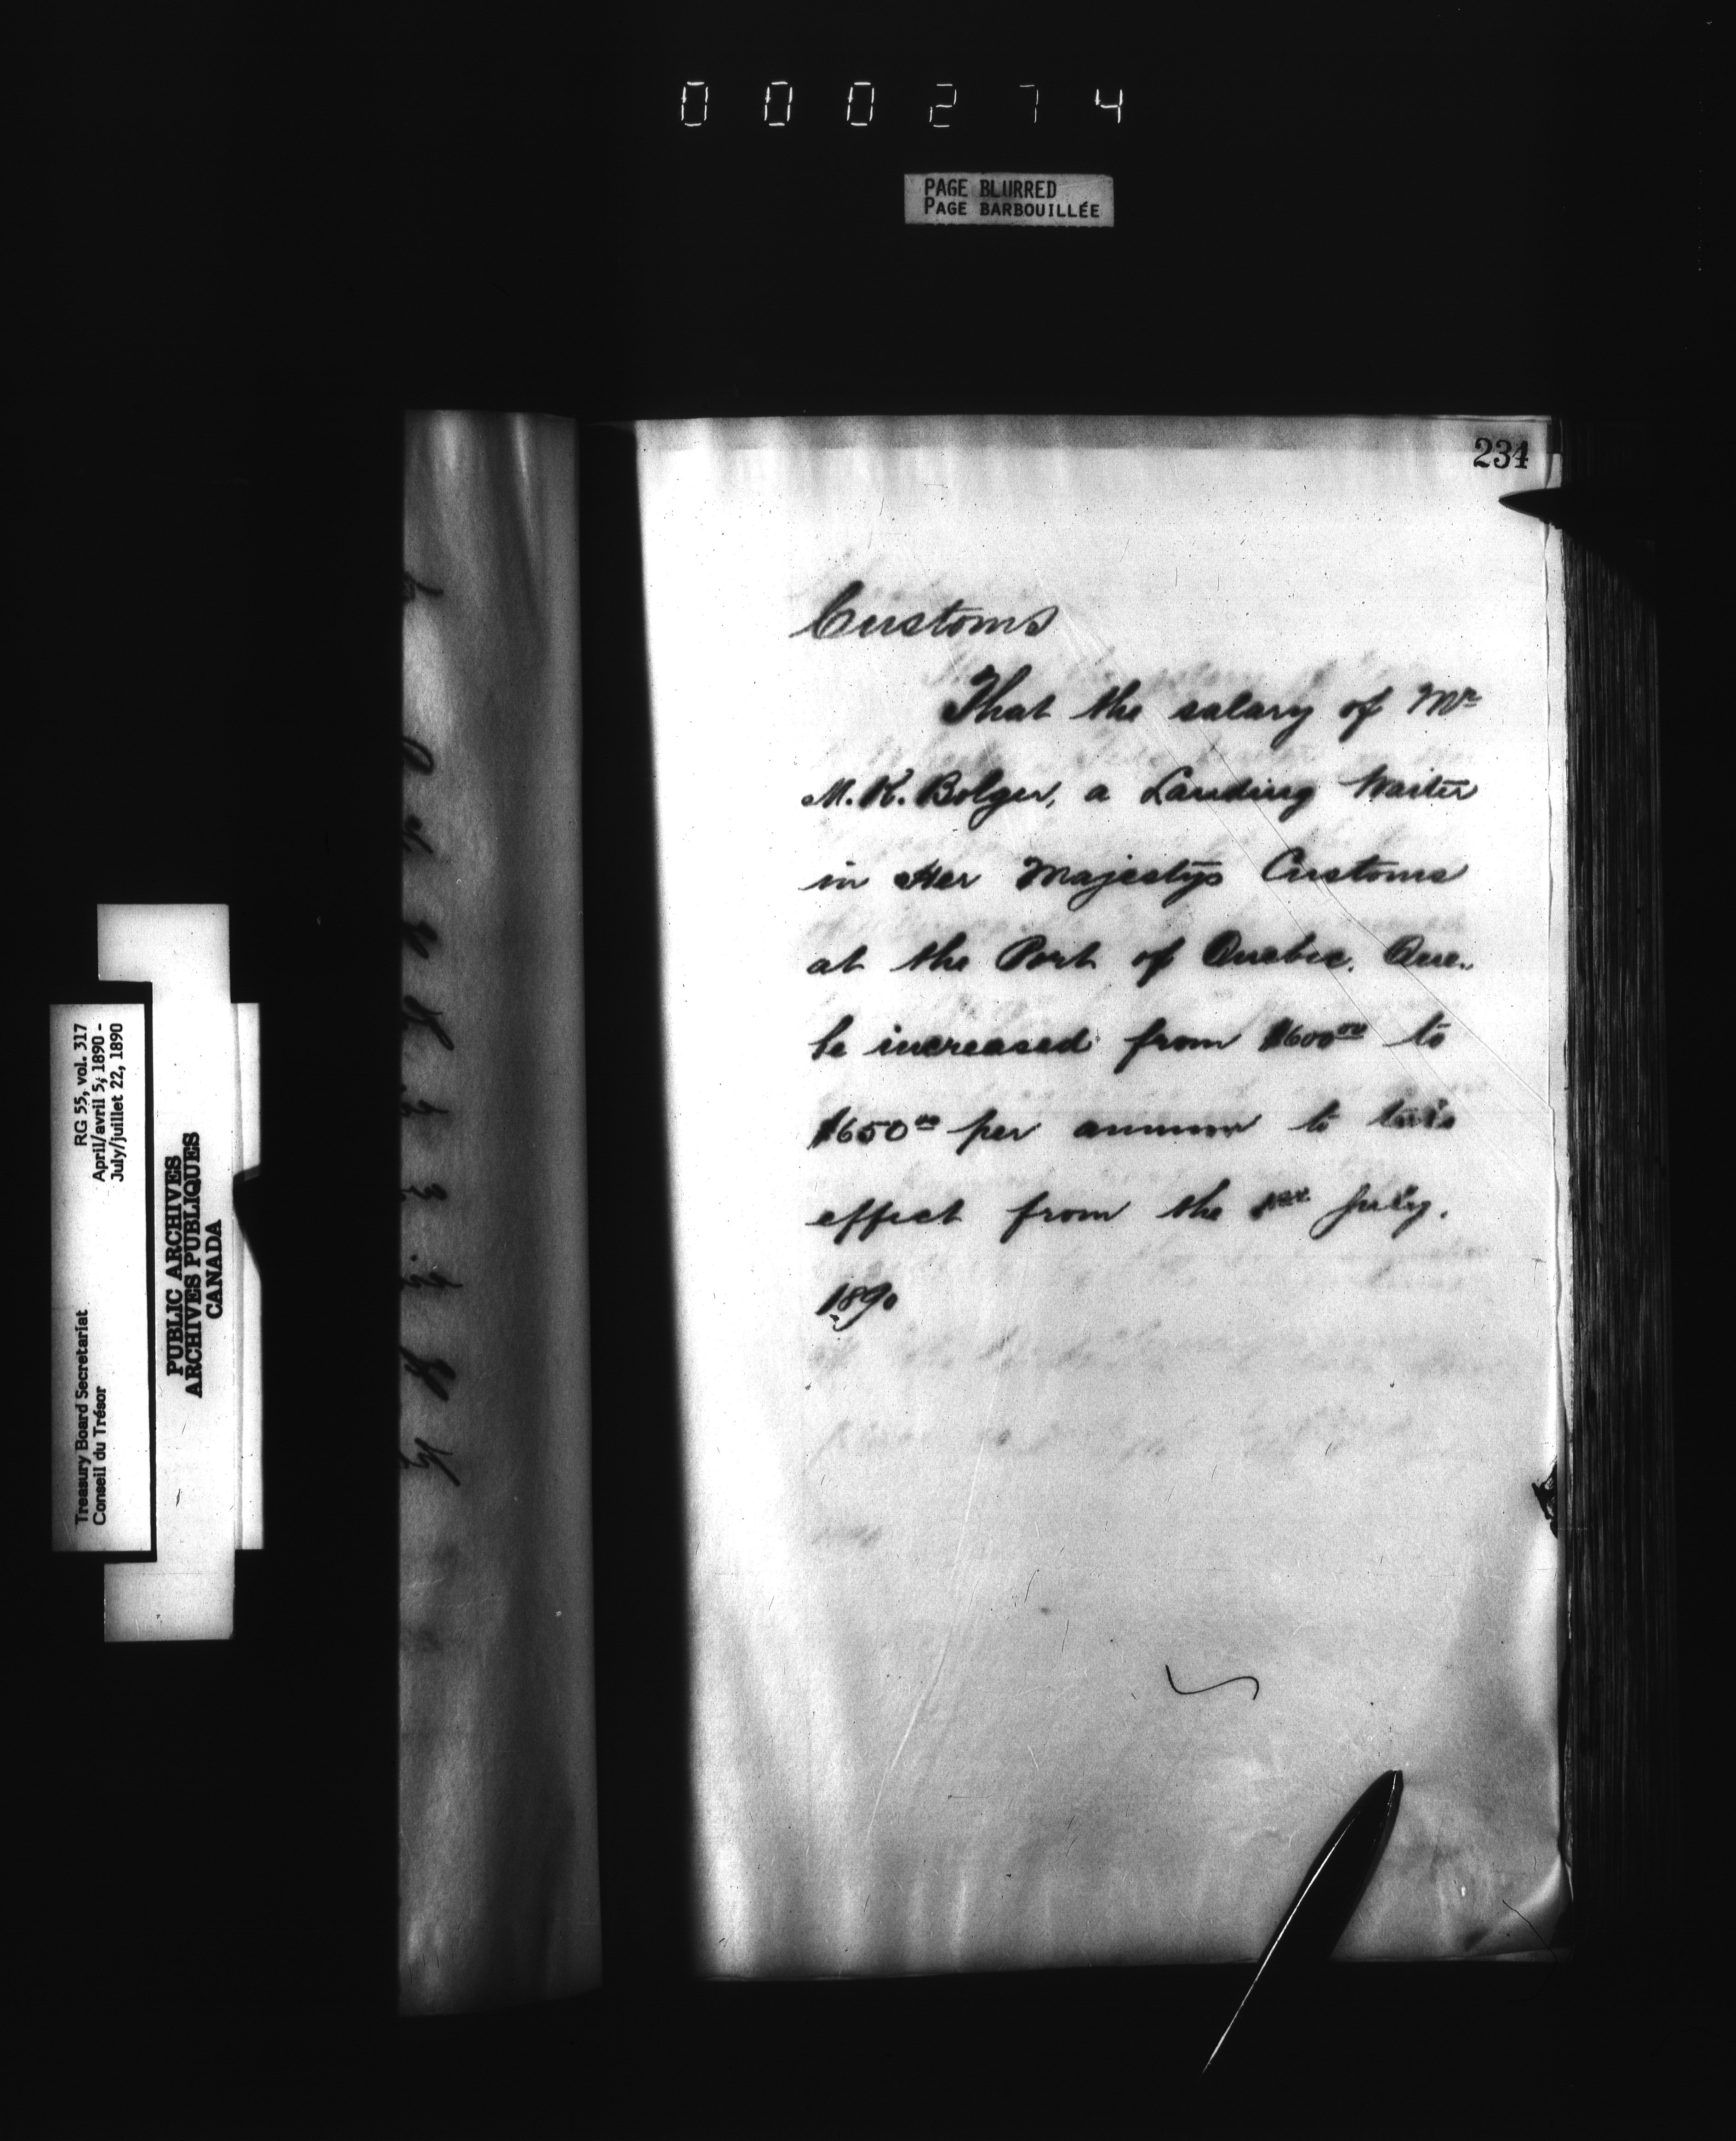 000274
PAGE BLURRED
PAGE BARBOUILLÉE
234
Customs
That the salary of Mr
M. K. Bolger, a Landing Waiter
in Her Majestys Customs
at the Port of Quebec, Que.
be increased from $600 00 to
$650 00 per annum to take
effect from the 1st July,
1890
RG 55, vol. 317
April/avril 5, 1890 -
July/juillet 22, 1890
Treasury Board Secretariat
Conseil du Trésor
PUBLIC ARCHIVES
ARCHIVES PUBLIQUES
CANADA